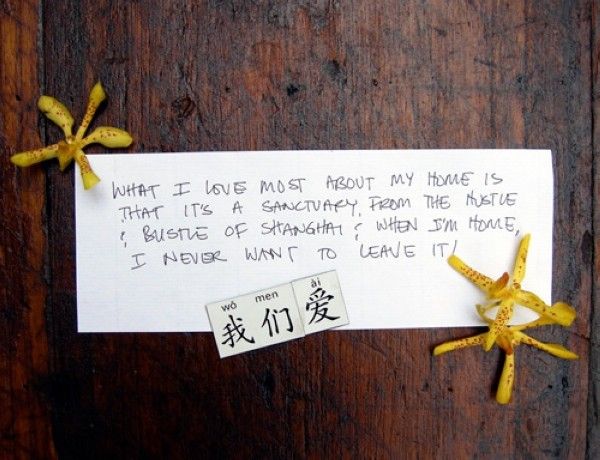 WHAT I LOVE MOST ABOUT MY HOME IS
THAT IT'S A SANCTUARY FROM THE HUSTLE
& BUSTLE OF SHANGHAI & WHEN I'M HOME,
I NEVER WANT TO LEAVE IT!
wǒ men ài
我们爱